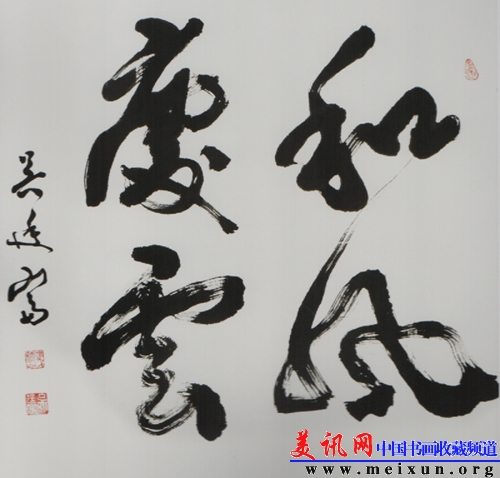 和風
慶雲
美讯网中国书画收藏频道
www.meixun.org